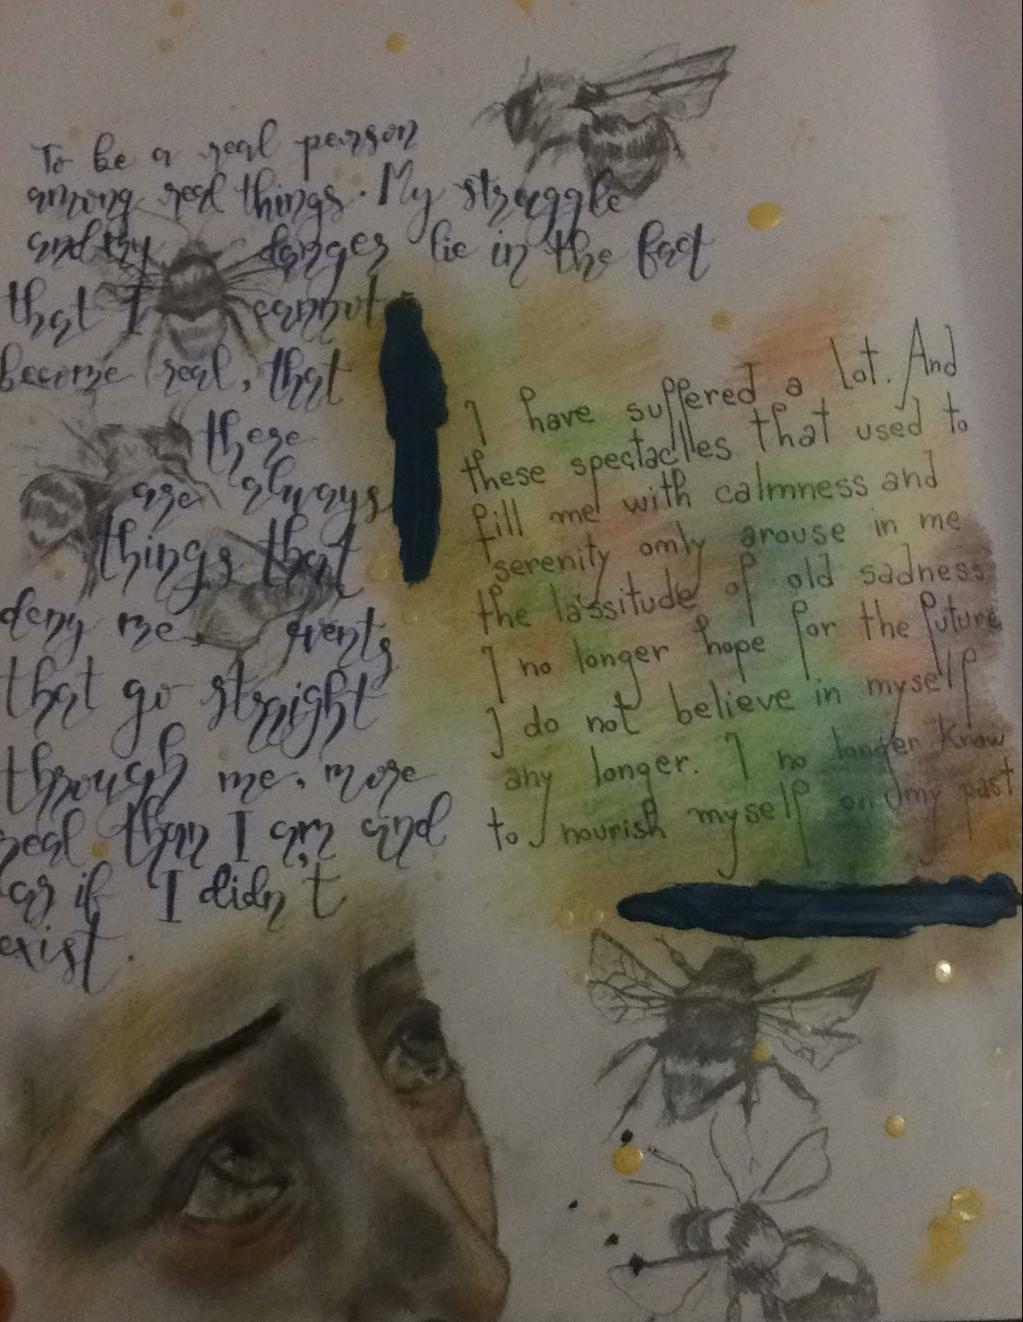 To be a real person
among real things. My struggle
and my danger lie in the fact
that I cannot
become real, that
there
are always
things that
deny me events
that go straight
through me, more
real than I am and
as if I didn't
exist.
I have suffered a lot. And
these spectaclles that used to
fill me with calmness and
serenity only arouse in me
the lassitude of old sadness
I no longer hope for the future
I do not believe in myself
any longer. I no longer know
to nourish myself on my past